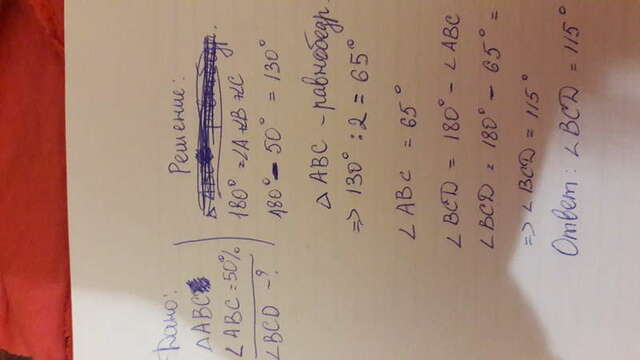 Дано:
△ABC
∠ABC = 50%
∠BCD - ?
Решение:
180° = ∠A ∠B ∠C
180° - 50° = 130°
△ABC - равнобедр.
=> 130° : 2 = 65°
∠ABC = 65°
∠BCD = 180° - ∠ABC
∠BCD = 180° - 65° =
=> ∠BCD = 115°
Ответ: ∠BCD = 115°